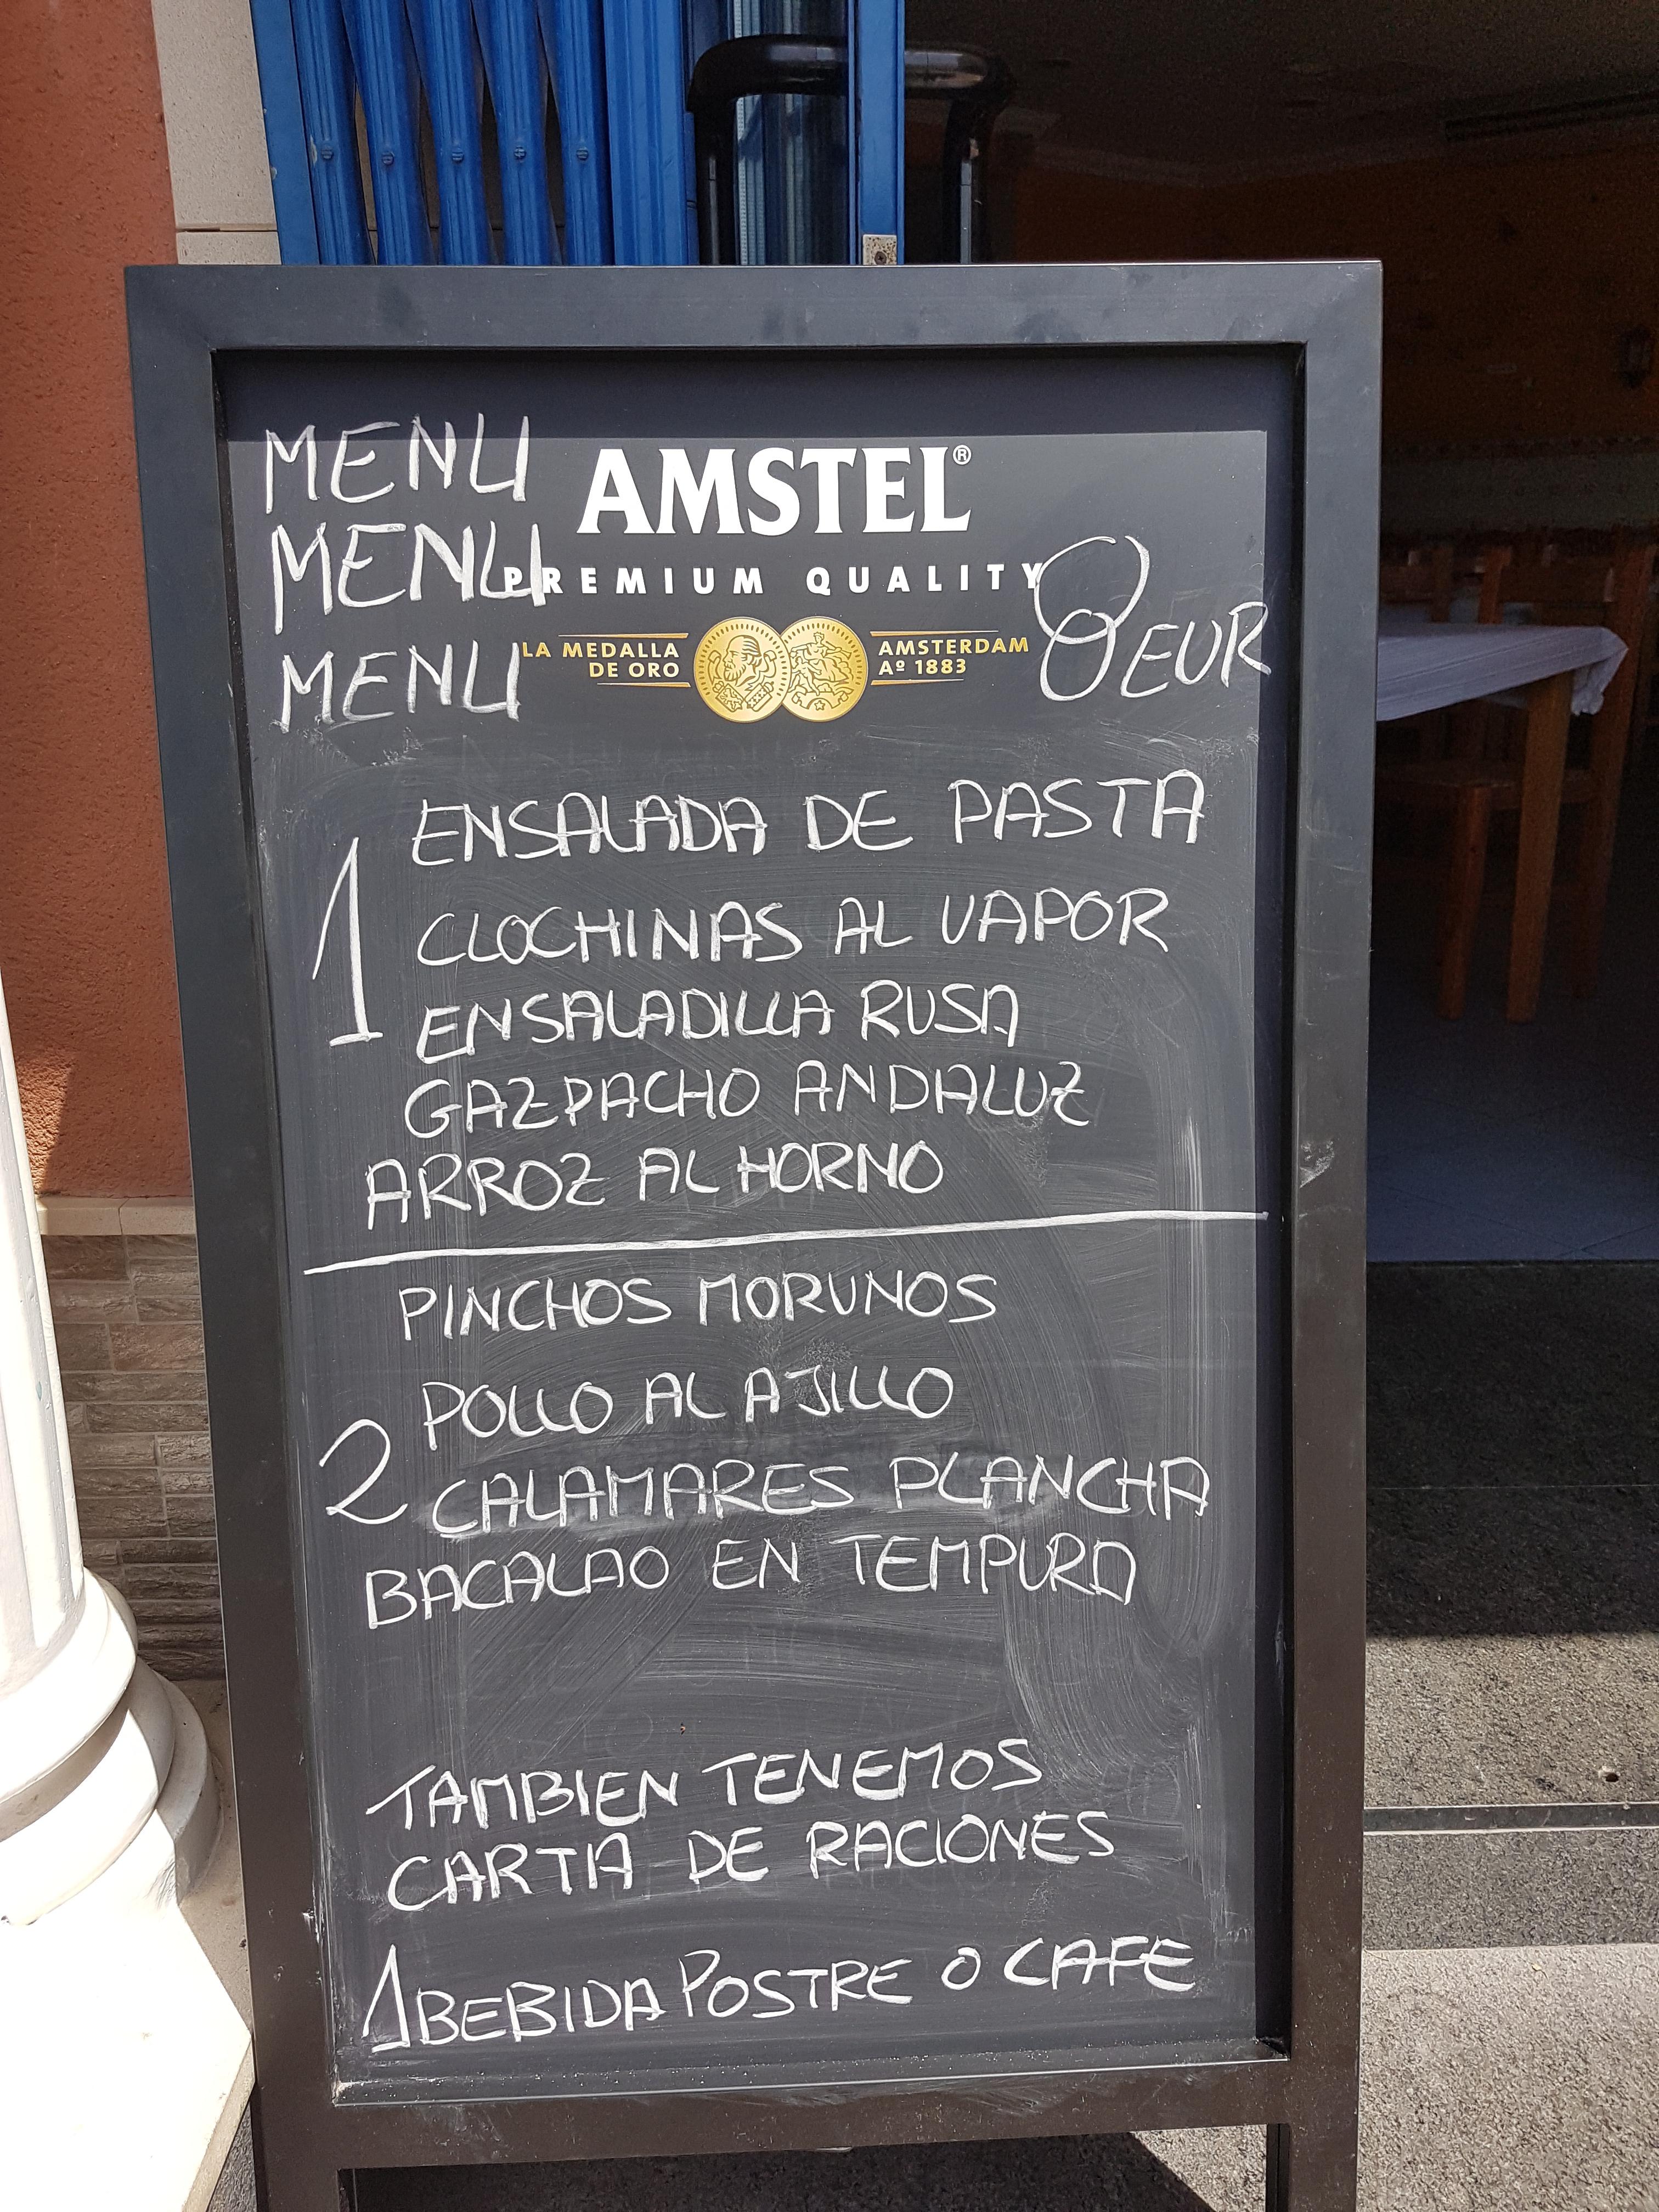 MENU
AMSTEL®
MENU
PREMIUM QUALITY
8 EUR
MENU
LA MEDALLA
DE ORO
AMSTERDAM
Aº 1883
ENSALADA DE PASTA
1
CLOCHINAS AL VAPOR
ENSALADILLA RUSA
GAZPACHO ANDALUZ
ARROZ AL HORNO
PINCHOS MORUNOS
POLLO AL AJILLO
2
CALAMARES PLANCHA
BACALAO EN TEMPURA
TAMBIEN TENEMOS
CARTA DE RACIONES
1 BEBIDA POSTRE O CAFE